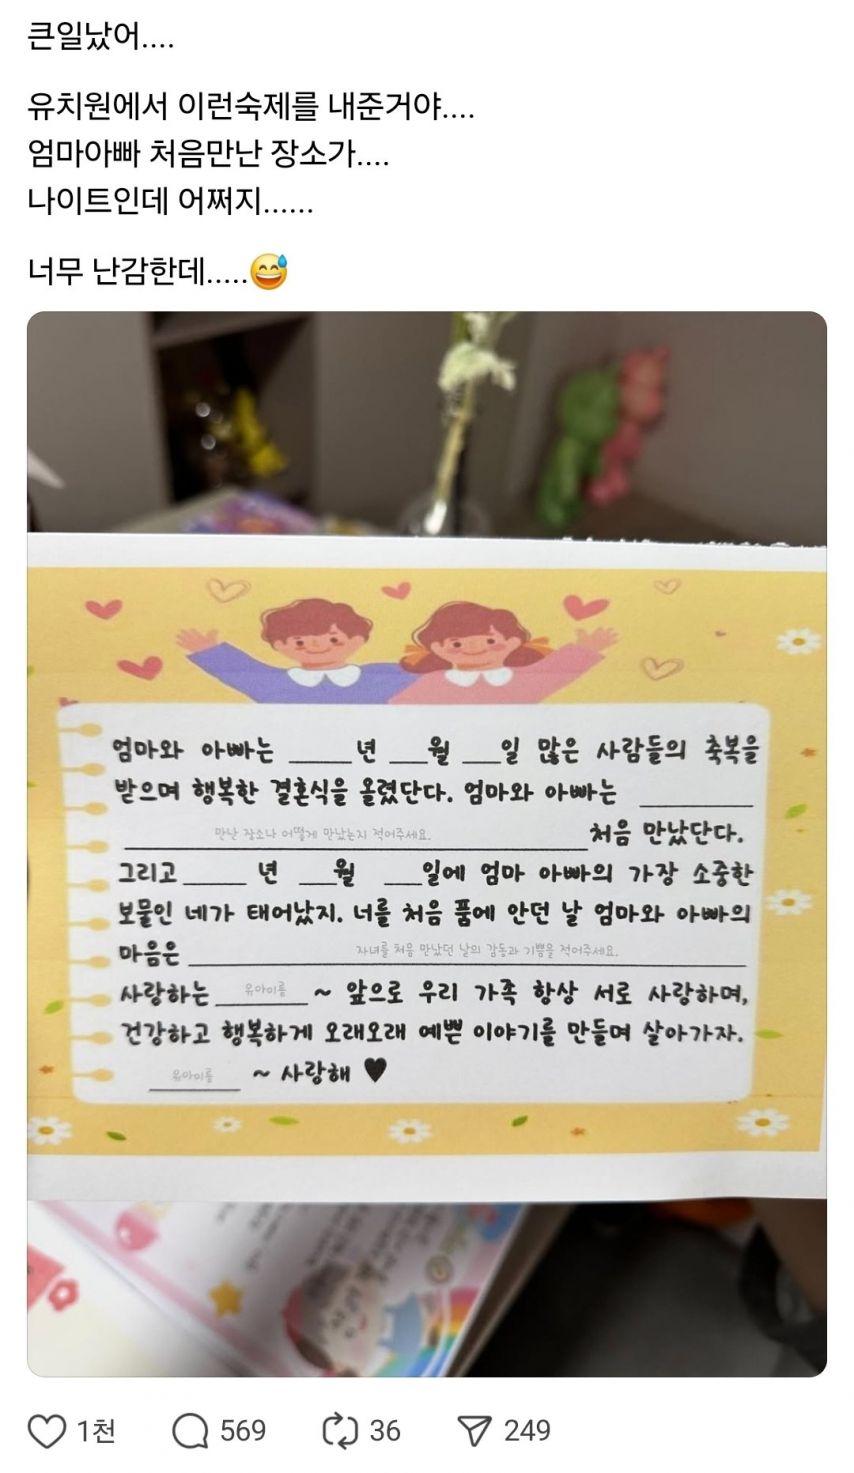 큰일났어....
유치원에서 이런숙제를 내준거야....
엄마아빠 처음만난 장소가....
나이트인데 어쩌지......
너무 난감한데.....😅
엄마와 아빠는 _____년 ___월 ___일 많은 사람들의 축복을
받으며 행복한 결혼식을 올렸단다. 엄마와 아빠는 _________
만난 장소나 어떻게 만났는지 적어주세요. 처음 만났단다.
그리고 _____ 년 ___월 ___일에 엄마 아빠의 가장 소중한
보물인 네가 태어났지. 너를 처음 품에 안던 날 엄마와 아빠의
마음은 자녀를 처음 만났던 날의 감동과 기쁨을 적어주세요.
사랑하는 유아이름 ~ 앞으로 우리 가족 항상 서로 사랑하며,
건강하고 행복하게 오래오래 예쁜 이야기를 만들며 살아가자.
유아이름 ~ 사랑해 ♥
1천 569 36 249